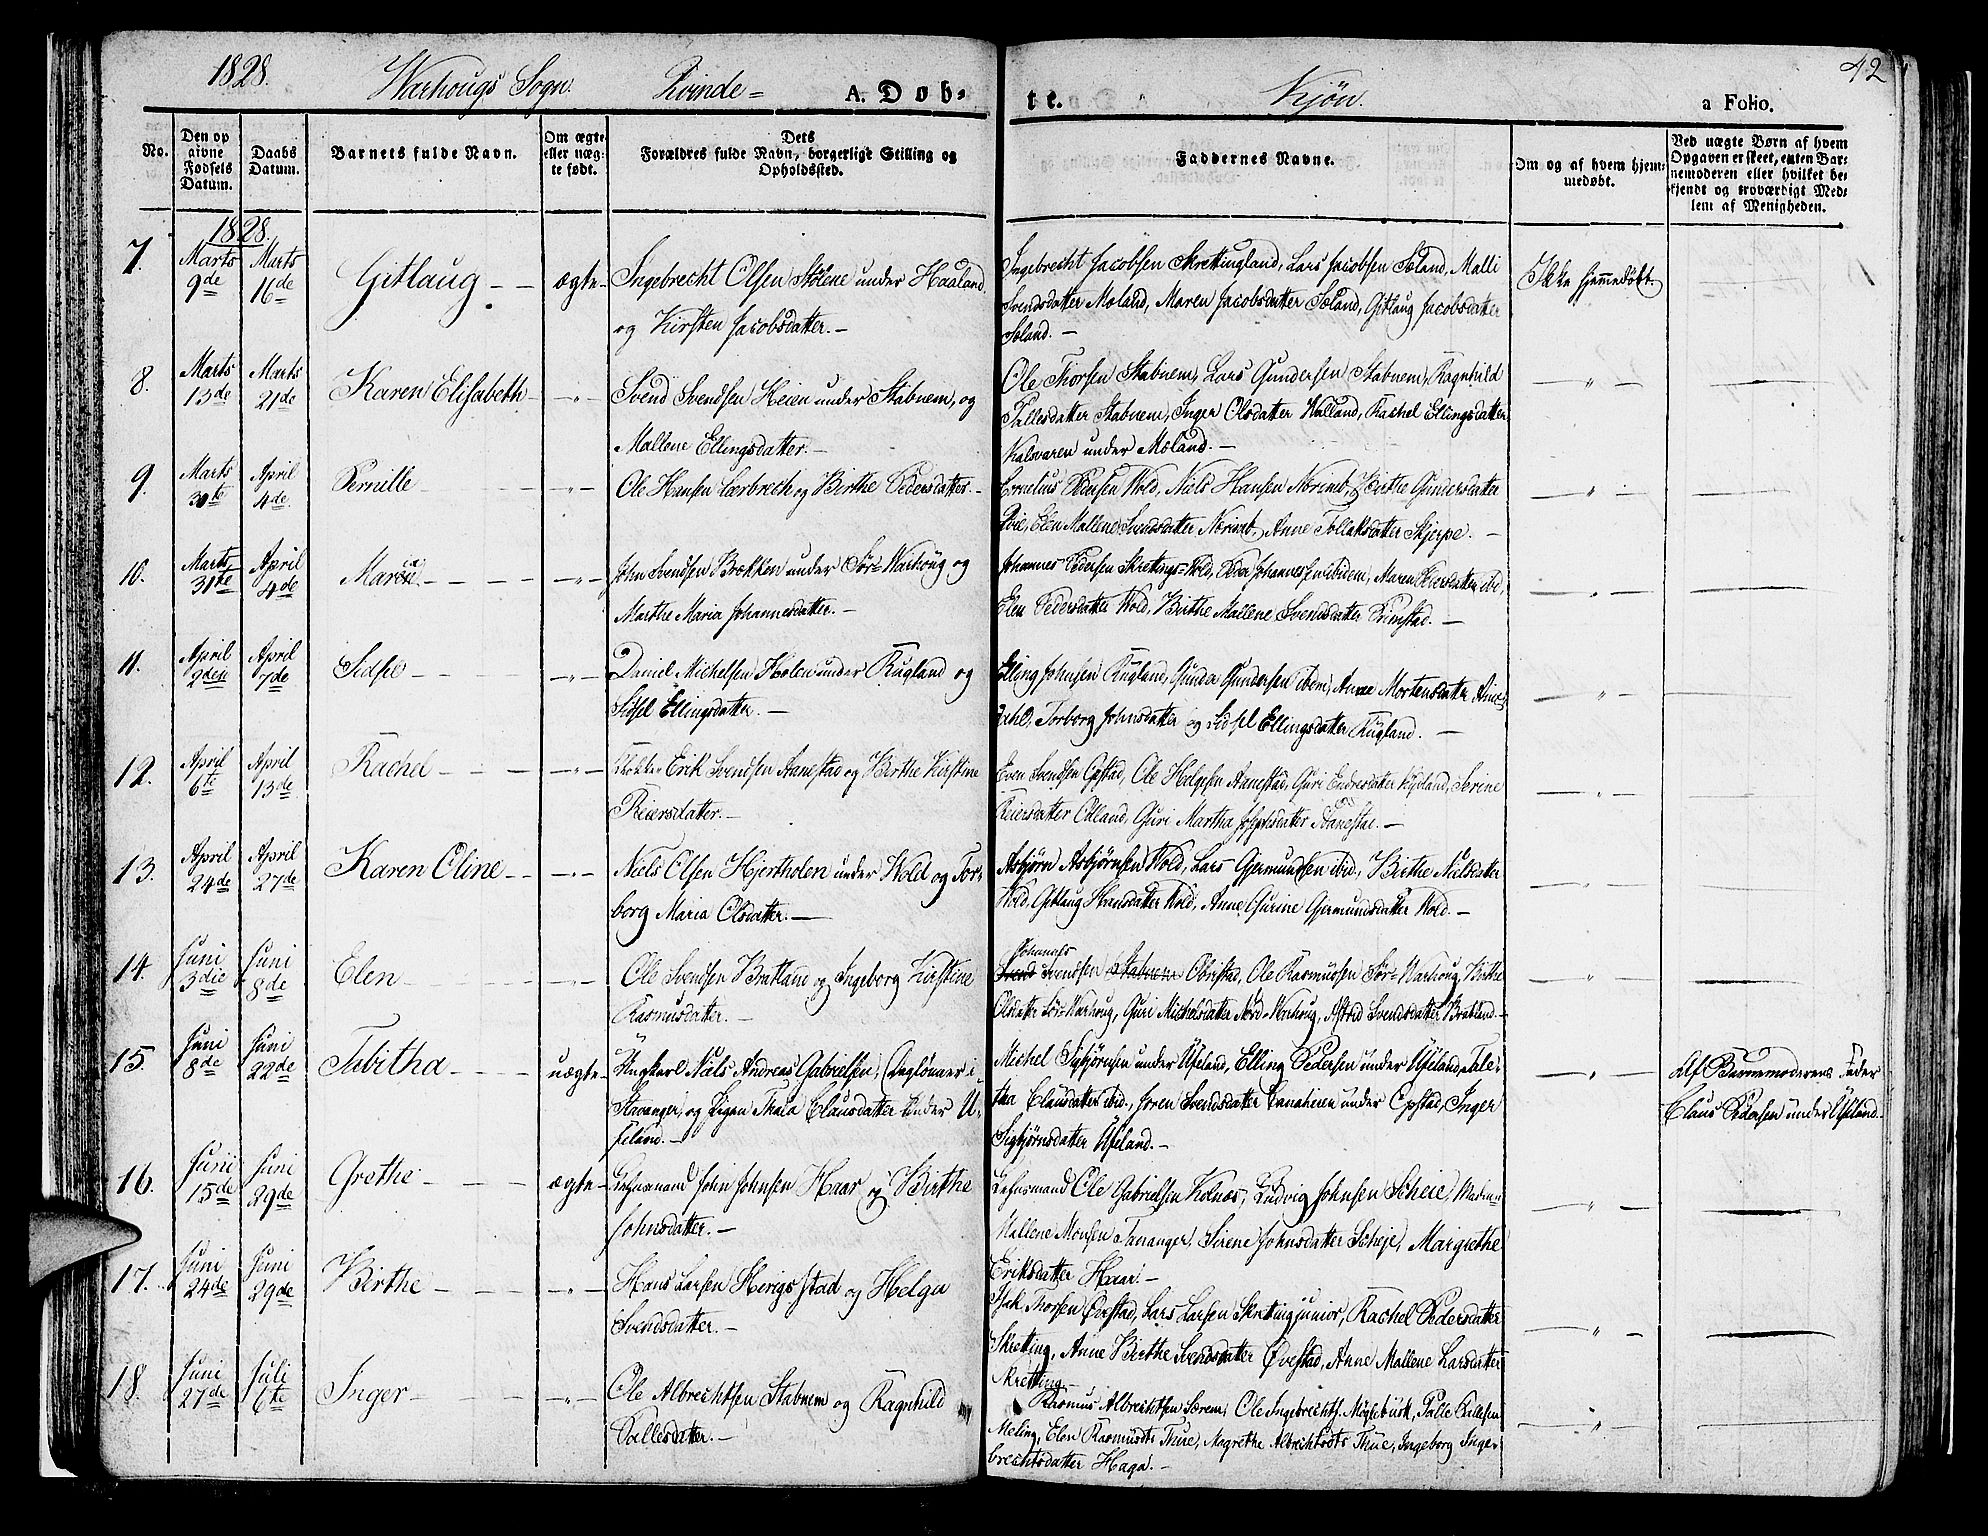 1828. Warhougs Sogn. Qvinde= A. Døb-
te. Kjøn. a Folio. 42
No.
Den opgivne Fødsels Datum.
Daabs Datum.
Barnets fulde Navn.
Om ægte eller uægte født.
Dets Forældres fulde Navn, borgerlige Stilling og Opholdssted.
Faddernes Navne.
Om og af hvem hjemmedøbt.
Ved uægte Børn af hvem Opgaven er skeet, enten Barnemoderen eller hvilket bekjendt og troværdigt Medlem af Menigheden.
1828.
7. Marts 9de Marts 16de Gitlaug ægte Ingebrecht Olsen Stølene under Haaland
og Kirsten Jacobsdatter.
Ingebrecht Jacobsen Skrettingland, Lars Jacobsen Søland, Malli
Svendsdatter Moland, Maren Jacobsdatter Søland, Gitlaug Jacobsdatter
Søland.
Ikke hjemmedøbt
8. Marts 13de Marts 21de Karen Elisabeth " Svend Svendsen Heien under Stabnem, og
Mallene Ellingsdatter.
Ole Thorsen Stabnem, Lars Gundersen Stabnem, Ragnhild
Tallesdatter Stabnem, Inger Olsdatter Walland, Rachel Ellingsdatter
Kalvaren under Moland.
"
9. Marts 30te April 4de Pernille " Ole Hansen Lerbrech og Birthe Pedersdatter.
Cornelius Pedersen Wold, Niels Hansen Nærimb, Birthe Gundersdatter
Elen Mallene Svendsdatter Nærimb, Anne Tollaksdatter Skjerpe.
"
10. Marts 31te April 4de Maren " John Svendsen Brækken under Sør-Warhoug og
Marthe Maria Johannesdatter.
Johannes Pedersen Skrettings-Wold, Peder Johannesen ibidem, Maren Peersdatter ibi,
Elen Pedersdatter Wold, Birthe Mallene Svendsdatter Grimstad.
"
11. April 2den April 7de Sidsel " Daniel Michelsen Holen under Rugland og
Sidsel Ellingsdatter.
Elling Johnsen Rugland, Gunder Gundersen ibdm, Anne Mortensdatter
Torborg Johnsdatter og Sidsel Ellingsdatter Rugland.
"
12. April 6te April 13de Rachel " Erik Svendsen Aanestad og Birthe Kirstine
Reiersdatter.
Even Svendsen Opstad, Ole Helgesen Aanestad, Guri Endresdatter Rygland, Serine
Reiersdatter Odland, Guri Martha Josephsdatter Aanestad.
"
13. April 24de April 27de Karen Oline " Niels Olsen Hjertholen under Wold og Tor-
borg Maria Olsdatter.
Asbjørn Asbjørnsen Wold, Lars Gjermundsen ibid., Birthe Nielsdatter
Wold, Gitlaug Hansdatter Wold, Anne Gurine Gjermundsdatter Wold.
"
14. Juni 3die Juni 8de Elen " Ole Svendsen Bratland og Ingeborg Kirstine
Rasmusdatter.
Johannes
Svend Svendsen Stabnem Obrestad, Ole Rasmussen Sør-Warhoug, Birthe
Olsdatter Sør-Warhoug, Guri Michelsdatter Nord-Warhoug, Astrid Svendsdatter Bratland.
"
15. Juni 8de Juni 22de Tabitha uægte Ungkarl Niels Andreas Gabrielsen, (Dagslønner i
Stavanger, og Pigen Thala Clausdatter under U-
feland.
Michel Sigbjørnsen under Ufeland, Elling Pedersen under Ufeland, Tale-
tha Clausdatter ibid., Joren Svendsdatter Tanaheien under Opstad, Inger
Sigbjørnsdatter Ufeland.
"
Af Barnemoderens Fader
Claus Pedersen under Ufeland.
16. Juni 15de Juni 29de Grethe ægte Lehnsmand John Johnsen Haar og Birthe
Johnsdatter.
Lehnsmand Ole Gabrielsen Kolnæs, Ludvig Johnsen Scheie, Madme
Mallene Monsen Tananger, Sirene Johnsdatter Scheje, Margrethe
Eriksdatter Haar.
"
17. Juni 24de Juni 29de Birthe " Hans Larsen Herigstad og Helga
Svendsdatter.
Isak Thorsen Øvestad, Lars Larsen Skretting junior, Rachel Pedersdatter
Skretting, Anne Birthe Svendsdatter Øvestad, Anne Mallene Larsdatter
Skretting.
"
18. Juni 27de Juli 6te Inger " Ole Albrechtsen Stabnem og Ragnhild
Tallesdatter.
Rasmus Albrechtsen Særem, Ole Ingebrechts. Møglebust, Talle
Meling, Elen Rasmusdt. Thue, Magrethe Albrechtsdt. Thue, Ingeborg Inge-
brechtsdatter Haga.
"